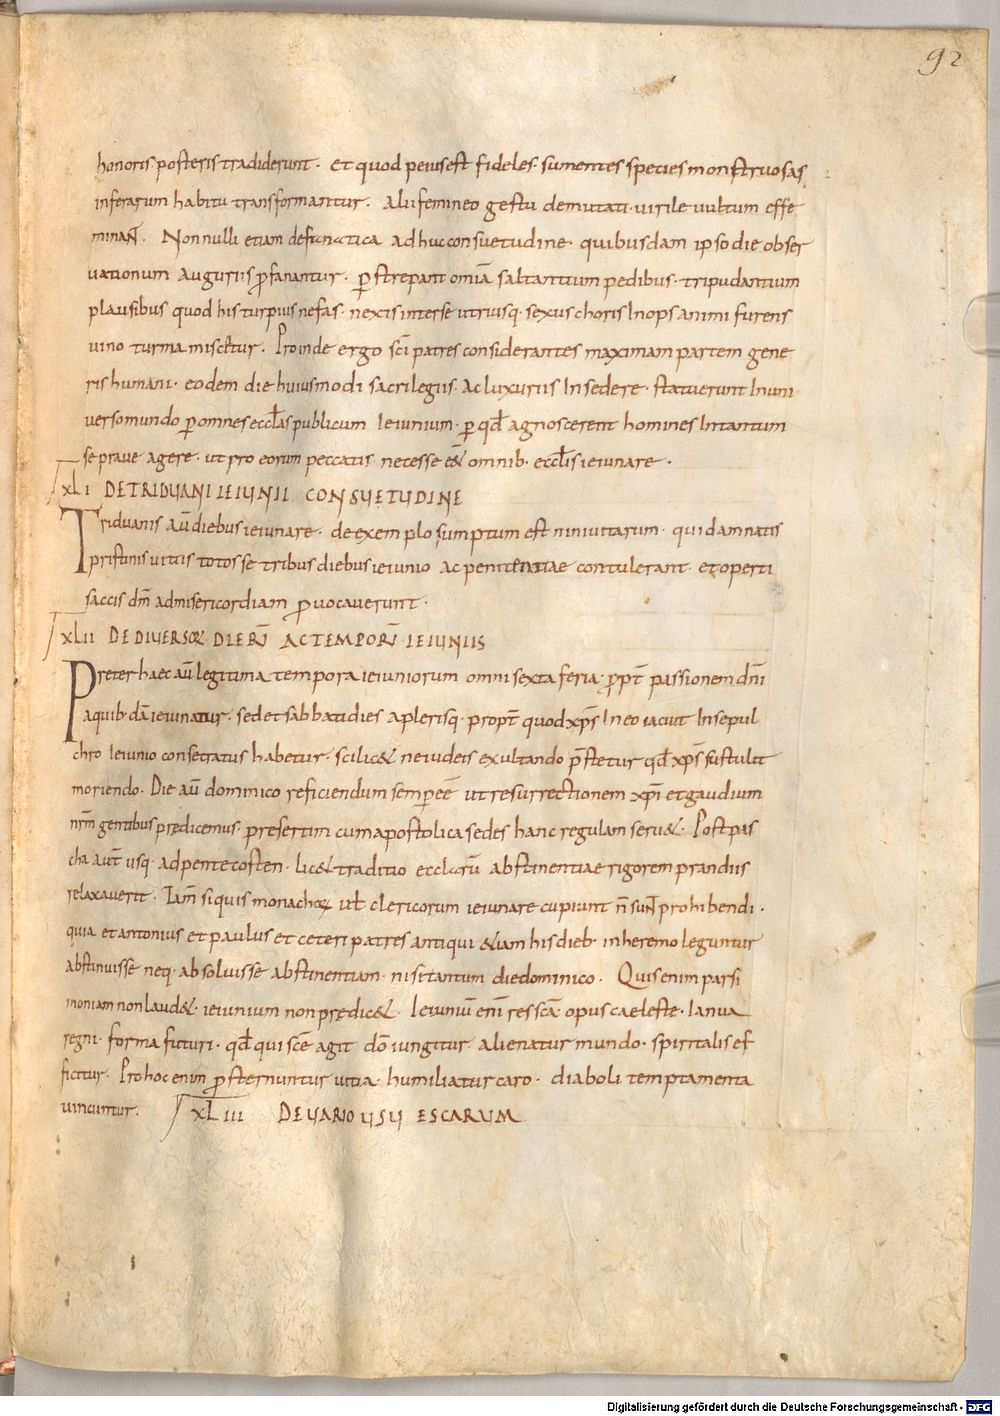 92
honoris posteris tradiderunt · et quod peius est fideles · sumentes species monstruosas
inferarum habitu transformantur · Alii femineo gestu demutati · virile uultum effe
minant̄ . Nonnulli etiam de fanatica adhuc consuetudine · quibusdam ipso die obser
uationum auguriis ꝓfanantur · ꝑstrepant omīa saltantium pedibus · tripudantium
plausibus quod his turpius nefas · nexis inter se utriusq · sexus choris Inops animi furens
uino turma miscetur · Proinde ergo sc̄i patres considerantes maximam partem gene
ris humani · eodem die huiusmodi sacrilegiis · Ac luxuriis Insedere · statuerunt In uni
uerso mundo ꝑ omnes eccłas publicum Ieiunium · ꝑ qd̄ agnoscerent homines Intantum
se praue agere · ut pro eorum peccatis necesse e& omnib · eccłis ieiunare ·
xLI DE TRIDUANI IEIUNII CONSUETUDINE
Triduanis aūt diebus ieiunare · de exemplo sumptum est niniuitarum · qui damnatis
pristinis uitiis totos se tribus diebus ieiunio ac penitentiae contulerant · et operti
saccis dm̄ ad misericordiam ꝓuocauerunt ·
xLII DE DIVERSOꝜ DIERŪ AC TEMPORŪ IEIUNIIS
Preter haec aūt legitima tempora ieiuniorum omni sexta feria · ꝓpt̄ passionem dn̄i
a quib· dā ieiunatur · sed et sabbati dies a plerisq · propt̄ quod xp̄s In eo iacuit In sepul
chro Ieiunio consecratus habetur · scilic& ne iudeis exultando p̄stetur qd̄ xp̄s sustulit
moriendo · Die aūt dominico reficiendum semper eē ut resurrectionem xp̄i et gaudium
nr̄m gentibus predicemus · presertim cum apostolica sedes hanc regulam seru& · Post pas
cha aut̄ usq · ad pentecosten · lic& traditio eccłarū abstinentiae rigorem prandiis
relaxauerit · Tam̄ si quis monachoꝝ uł clericorum ieiunare cupiunt n̄ sunt prohibendi ·
quia et antonius et paulus et ceteri patres antiqui &iam his dieb · in heremo leguntur
abstinuisse neq · absoluisse abstinentiam · nisi tantum die dominico · Quis enim parsi
moniam non laud& · ieiunium non predic& · Ieiuniū enī res sc̄a · opus caeleste · Ianua
regni · forma futuri · qd̄ qui sc̄e agit dō iungitur · alienatur mundo · spiritalis ef
ficitur · Pro hoc enim ꝓsternuntur uitia · humiliatur caro · diaboli temptamenta
uincuntur · xLIII DE VARIO USU ESCARUM
Digitalisierung gefördert durch die Deutsche Forschungsgemeinschaft - DFG